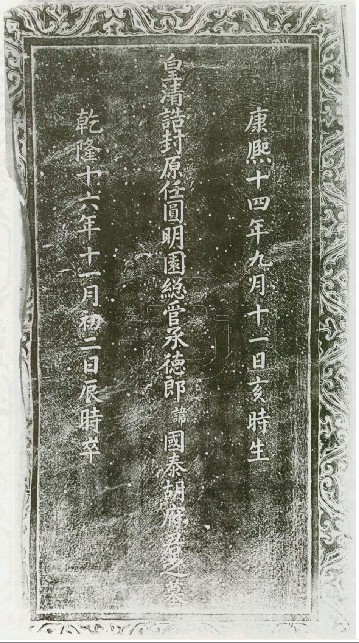 康熙十四年九月十一日亥時生
皇清誥封原任圓明園総管承德郎諱國泰胡府君之墓
乾隆十六年十一月初二日辰時卒